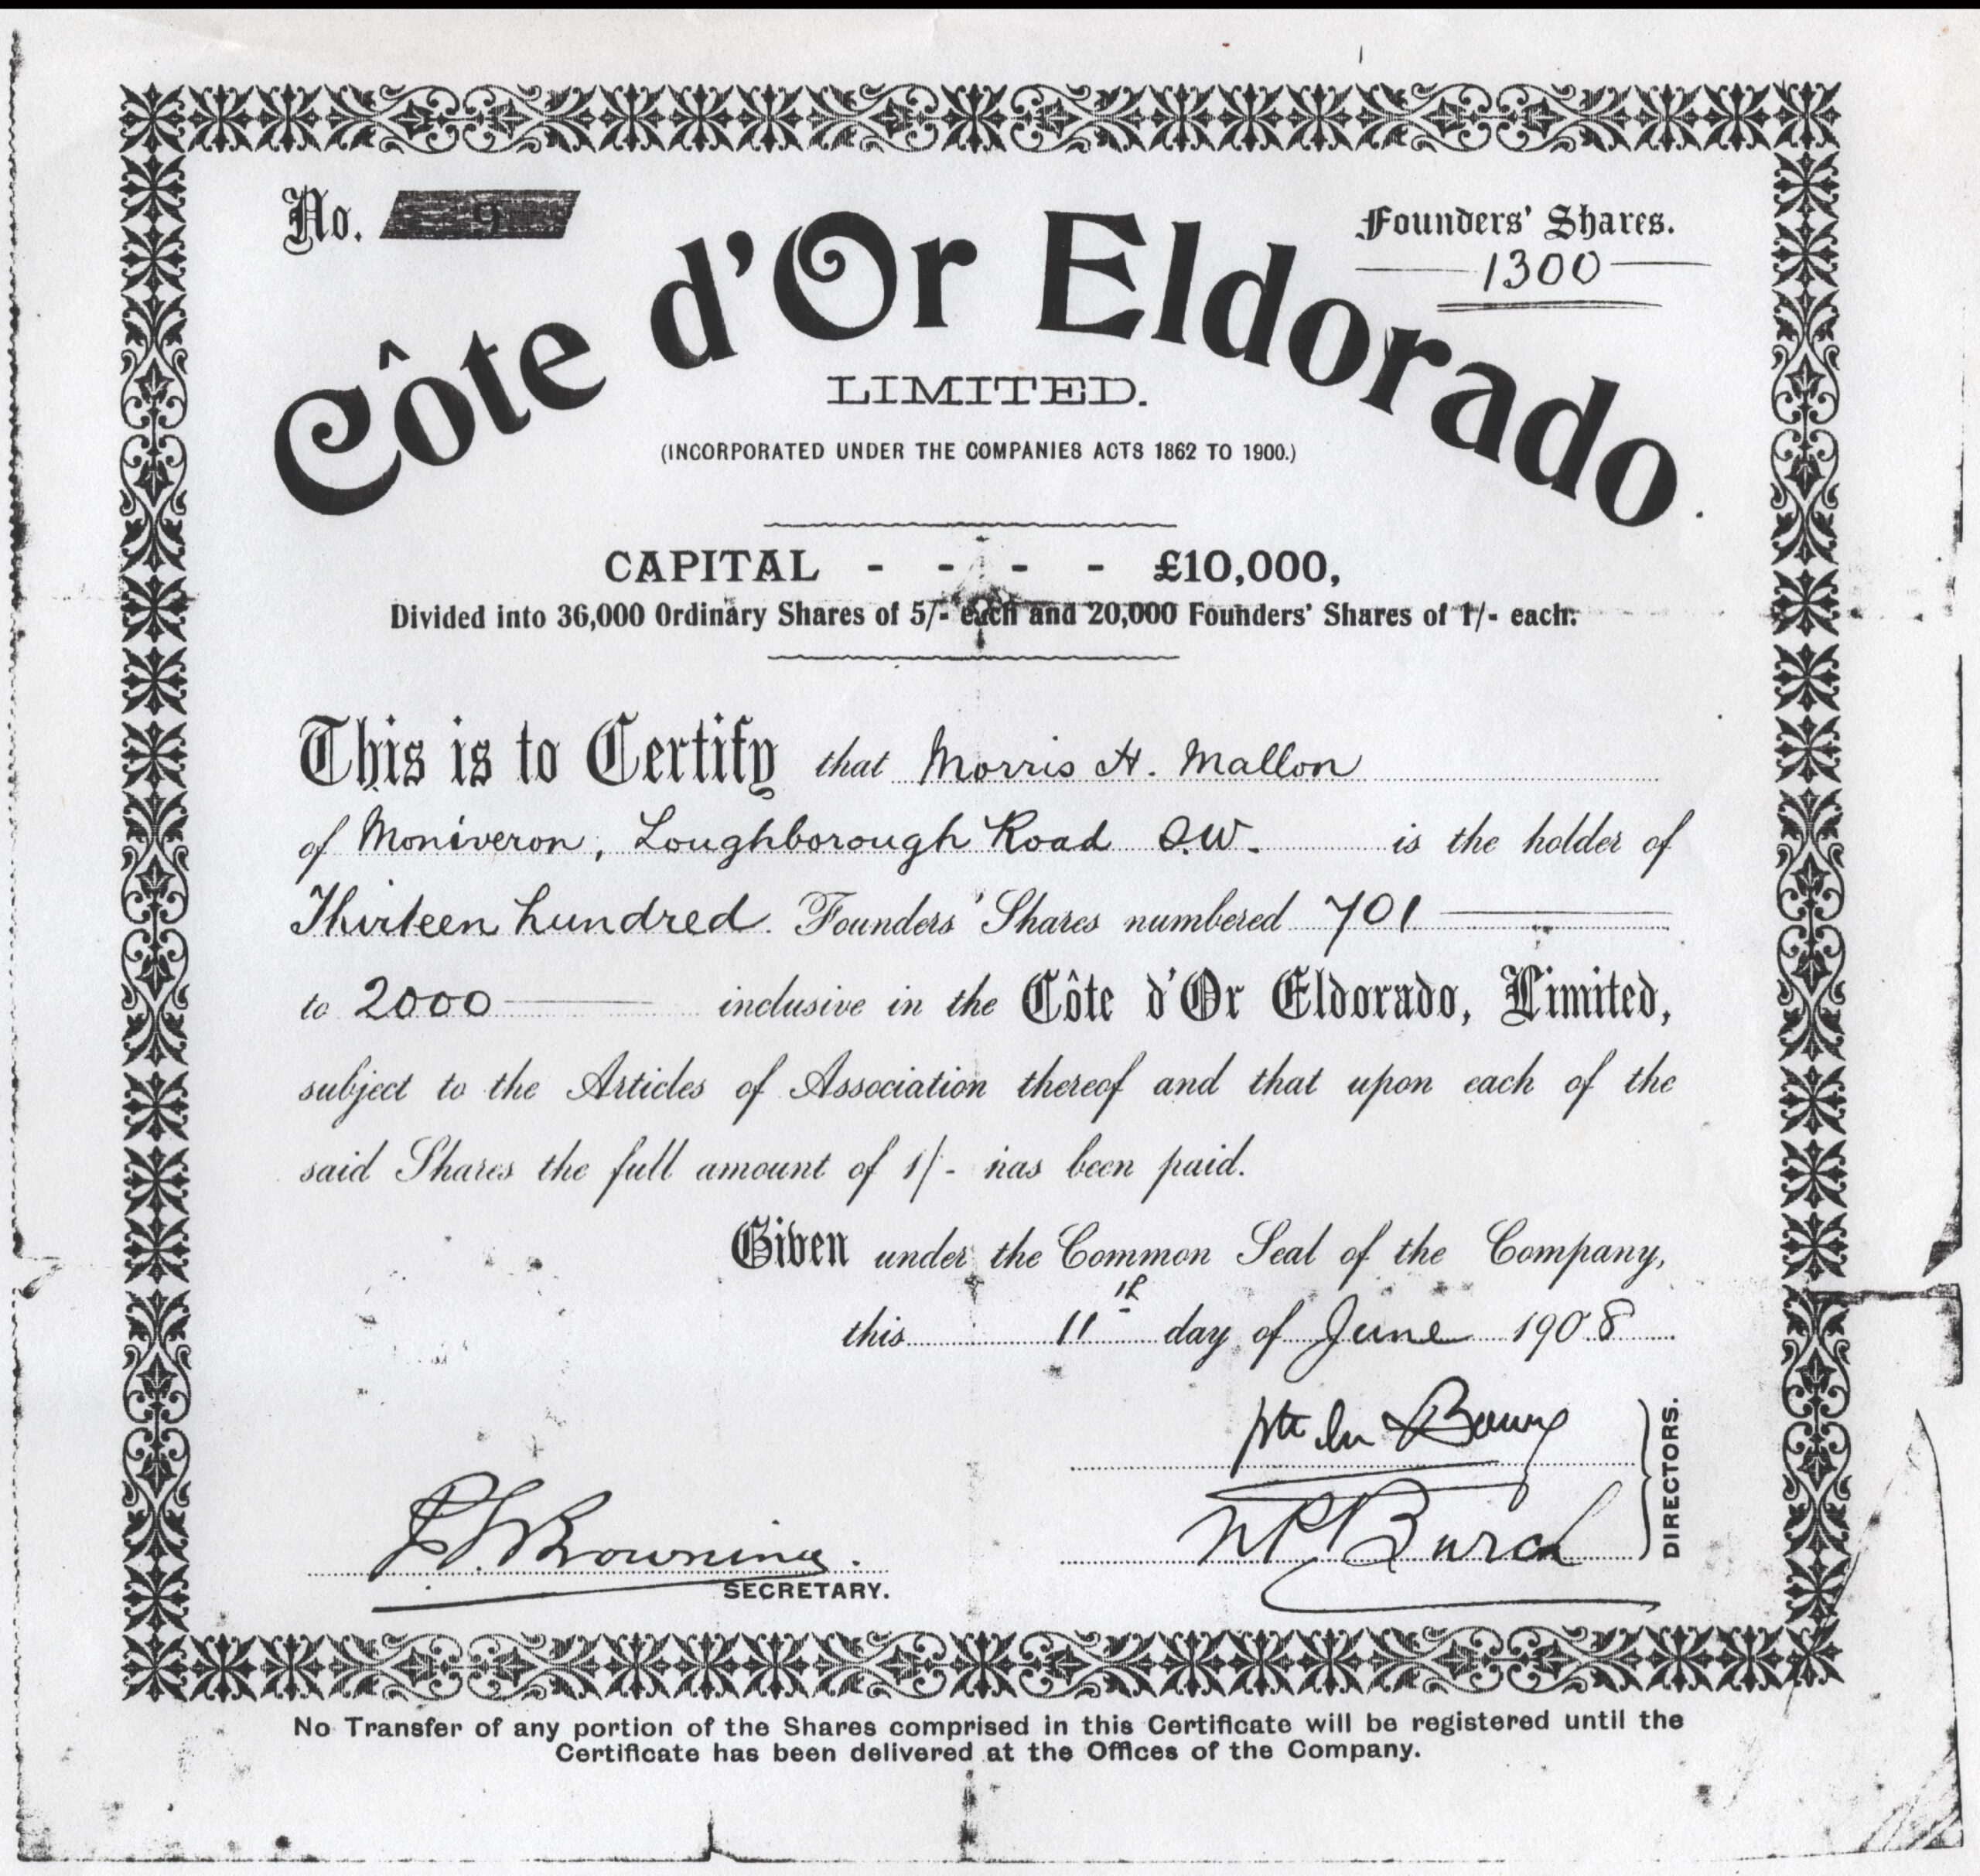 No. 9
Founders' Shares.
1300
Côte d'Or Eldorado
LIMITED.
(INCORPORATED UNDER THE COMPANIES ACTS 1862 TO 1900.)
CAPITAL - - - - £10,000,
Divided into 36,000 Ordinary Shares of 5/- each and 20,000 Founders' Shares of 1/- each.
This is to Certify that Morris H. Mallon
of Moniveron, Loughborough Road S.W. is the holder of
Thirteen hundred Founders' Shares numbered 701
to 2000 inclusive in the Côte d'Or Eldorado, Limited,
subject to the Articles of Association thereof and that upon each of the
said Shares the full amount of 1/- has been paid.
Given under the Common Seal of the Company,
this 11th day of June 1908
Browning.
SECRETARY.
Burch
DIRECTORS.
No Transfer of any portion of the Shares comprised in this Certificate will be registered until the
Certificate has been delivered at the Offices of the Company.